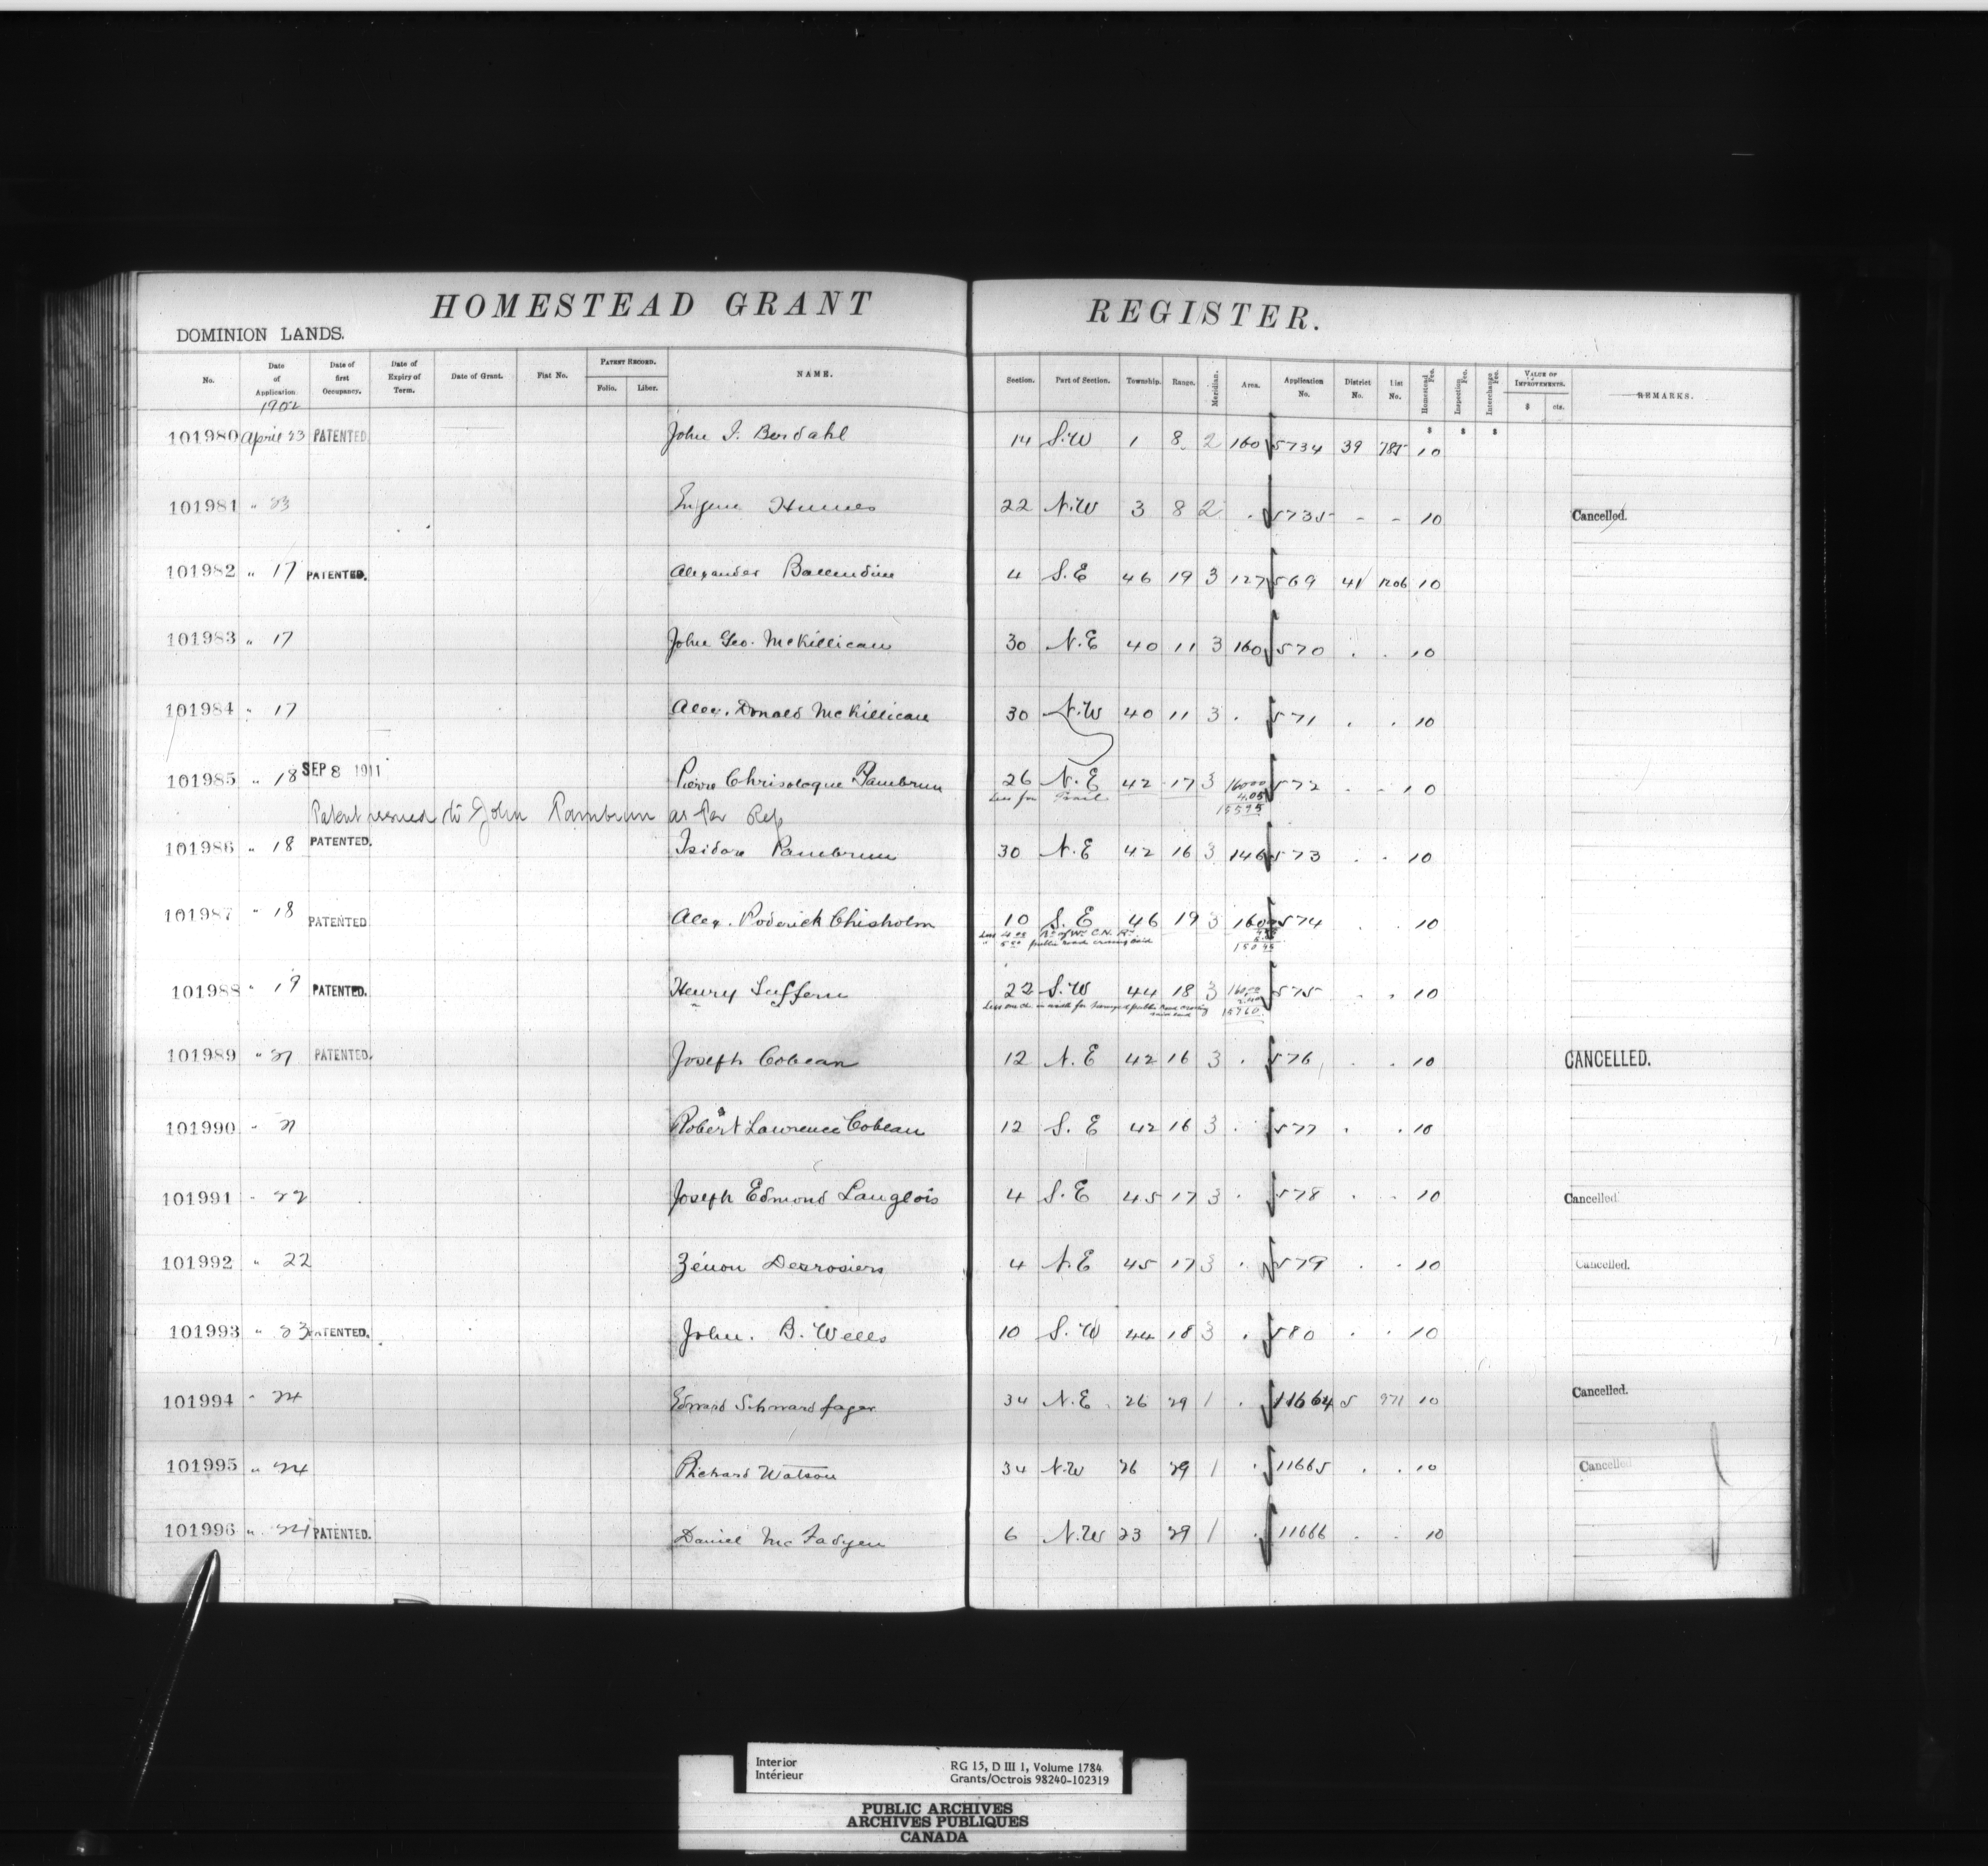 HOMESTEAD GRANT REGISTER.
DOMINION LANDS.
No. Date of Application Date of first Occupancy. Date of Expiry of Term. Date of Grant. Fiat No. PATENT RECORD. Folio. Liber. NAME. Section. Part of Section. Township. Range. Meridian. Area. Application No. District No. List No. Homestead Fee. Inspection Fee. Interchange Fee. VALUE OF IMPROVEMENTS. $ cts. REMARKS.
1902
$ $ $
101980 April 23 PATENTED John I. Berdahl 14 S.W 1 8 2 160 5734 39 785 10
101981 " 23 Eugene Humes 22 N.W 3 8 2 . 5735 - - 10 Cancelled.
101982 " 17 PATENTED. Alexander Ballendine 4 S.E 46 19 3 127 569 41 1206 10
101983 " 17 John Geo. McKillican 30 N.E 40 11 3 160 570 . . 10
101984 " 17 Alex. Donald McKillican 30 N.W 40 11 3 . 571 . . 10
101985 " 18 SEP 8 1911 Pierre Chrisologue Pambrun 26 N.E 42 17 3 16000 572 . . 10
Less for Trail 4.05
15595
Patent issued to John Pambrun as Per Rep
101986 " 18 PATENTED. Isidore Pambrun 30 N.E 42 16 3 146 573 . . 10
101987 " 18 PATENTED Alex. Roderick Chisholm 10 S.E 46 19 3 160 574 . . 10
Less 4.05 Rt of Wy C.N. Ry
" 5.50 public road crossing said
150.45
101988 " 19 PATENTED. Henry Suffern 22 S.W 44 18 3 16000 575 . . 10
Less one ch in width for surveyed public Road crossing said land 2.40
15760
101989 " 21 PATENTED. Joseph Cobean 12 N.E 42 16 3 . 576 . . 10 CANCELLED.
101990 " 21 Robert Lawrence Cobean 12 S.E 42 16 3 . 577 . . 10
101991 " 22 Joseph Edmond Langlois 4 S.E 45 17 3 . 578 . . 10 Cancelled.
101992 " 22 Zénon Desrosiers 4 N.E 45 17 3 . 579 . . 10 Cancelled.
101993 " 23 PATENTED. John. B. Wells 10 S.W 44 18 3 . 580 . . 10
101994 " 24 Edward Schwardfager 34 N.E 26 29 1 . 11664 5 971 10 Cancelled.
101995 " 24 Richard Watson 34 N.W 26 29 1 . 11665 . . 10 Cancelled
101996 " 24 PATENTED. Daniel McFadyen 6 N.W 23 29 1 . 11666 . . 10
Interior
Intérieur
RG 15, D III 1, Volume 1784
Grants/Octrois 98240-102319
PUBLIC ARCHIVES
ARCHIVES PUBLIQUES
CANADA